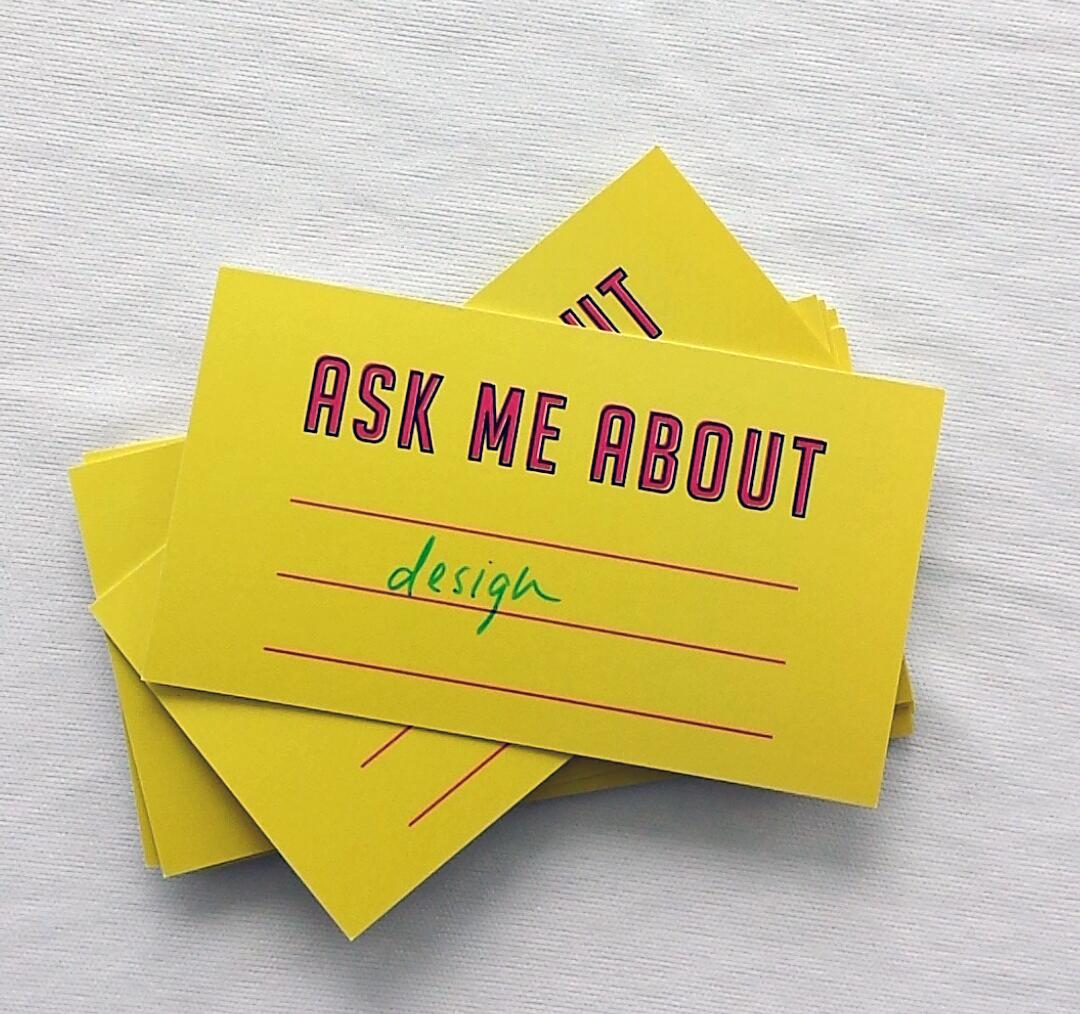 UT
ASK ME ABOUT
design